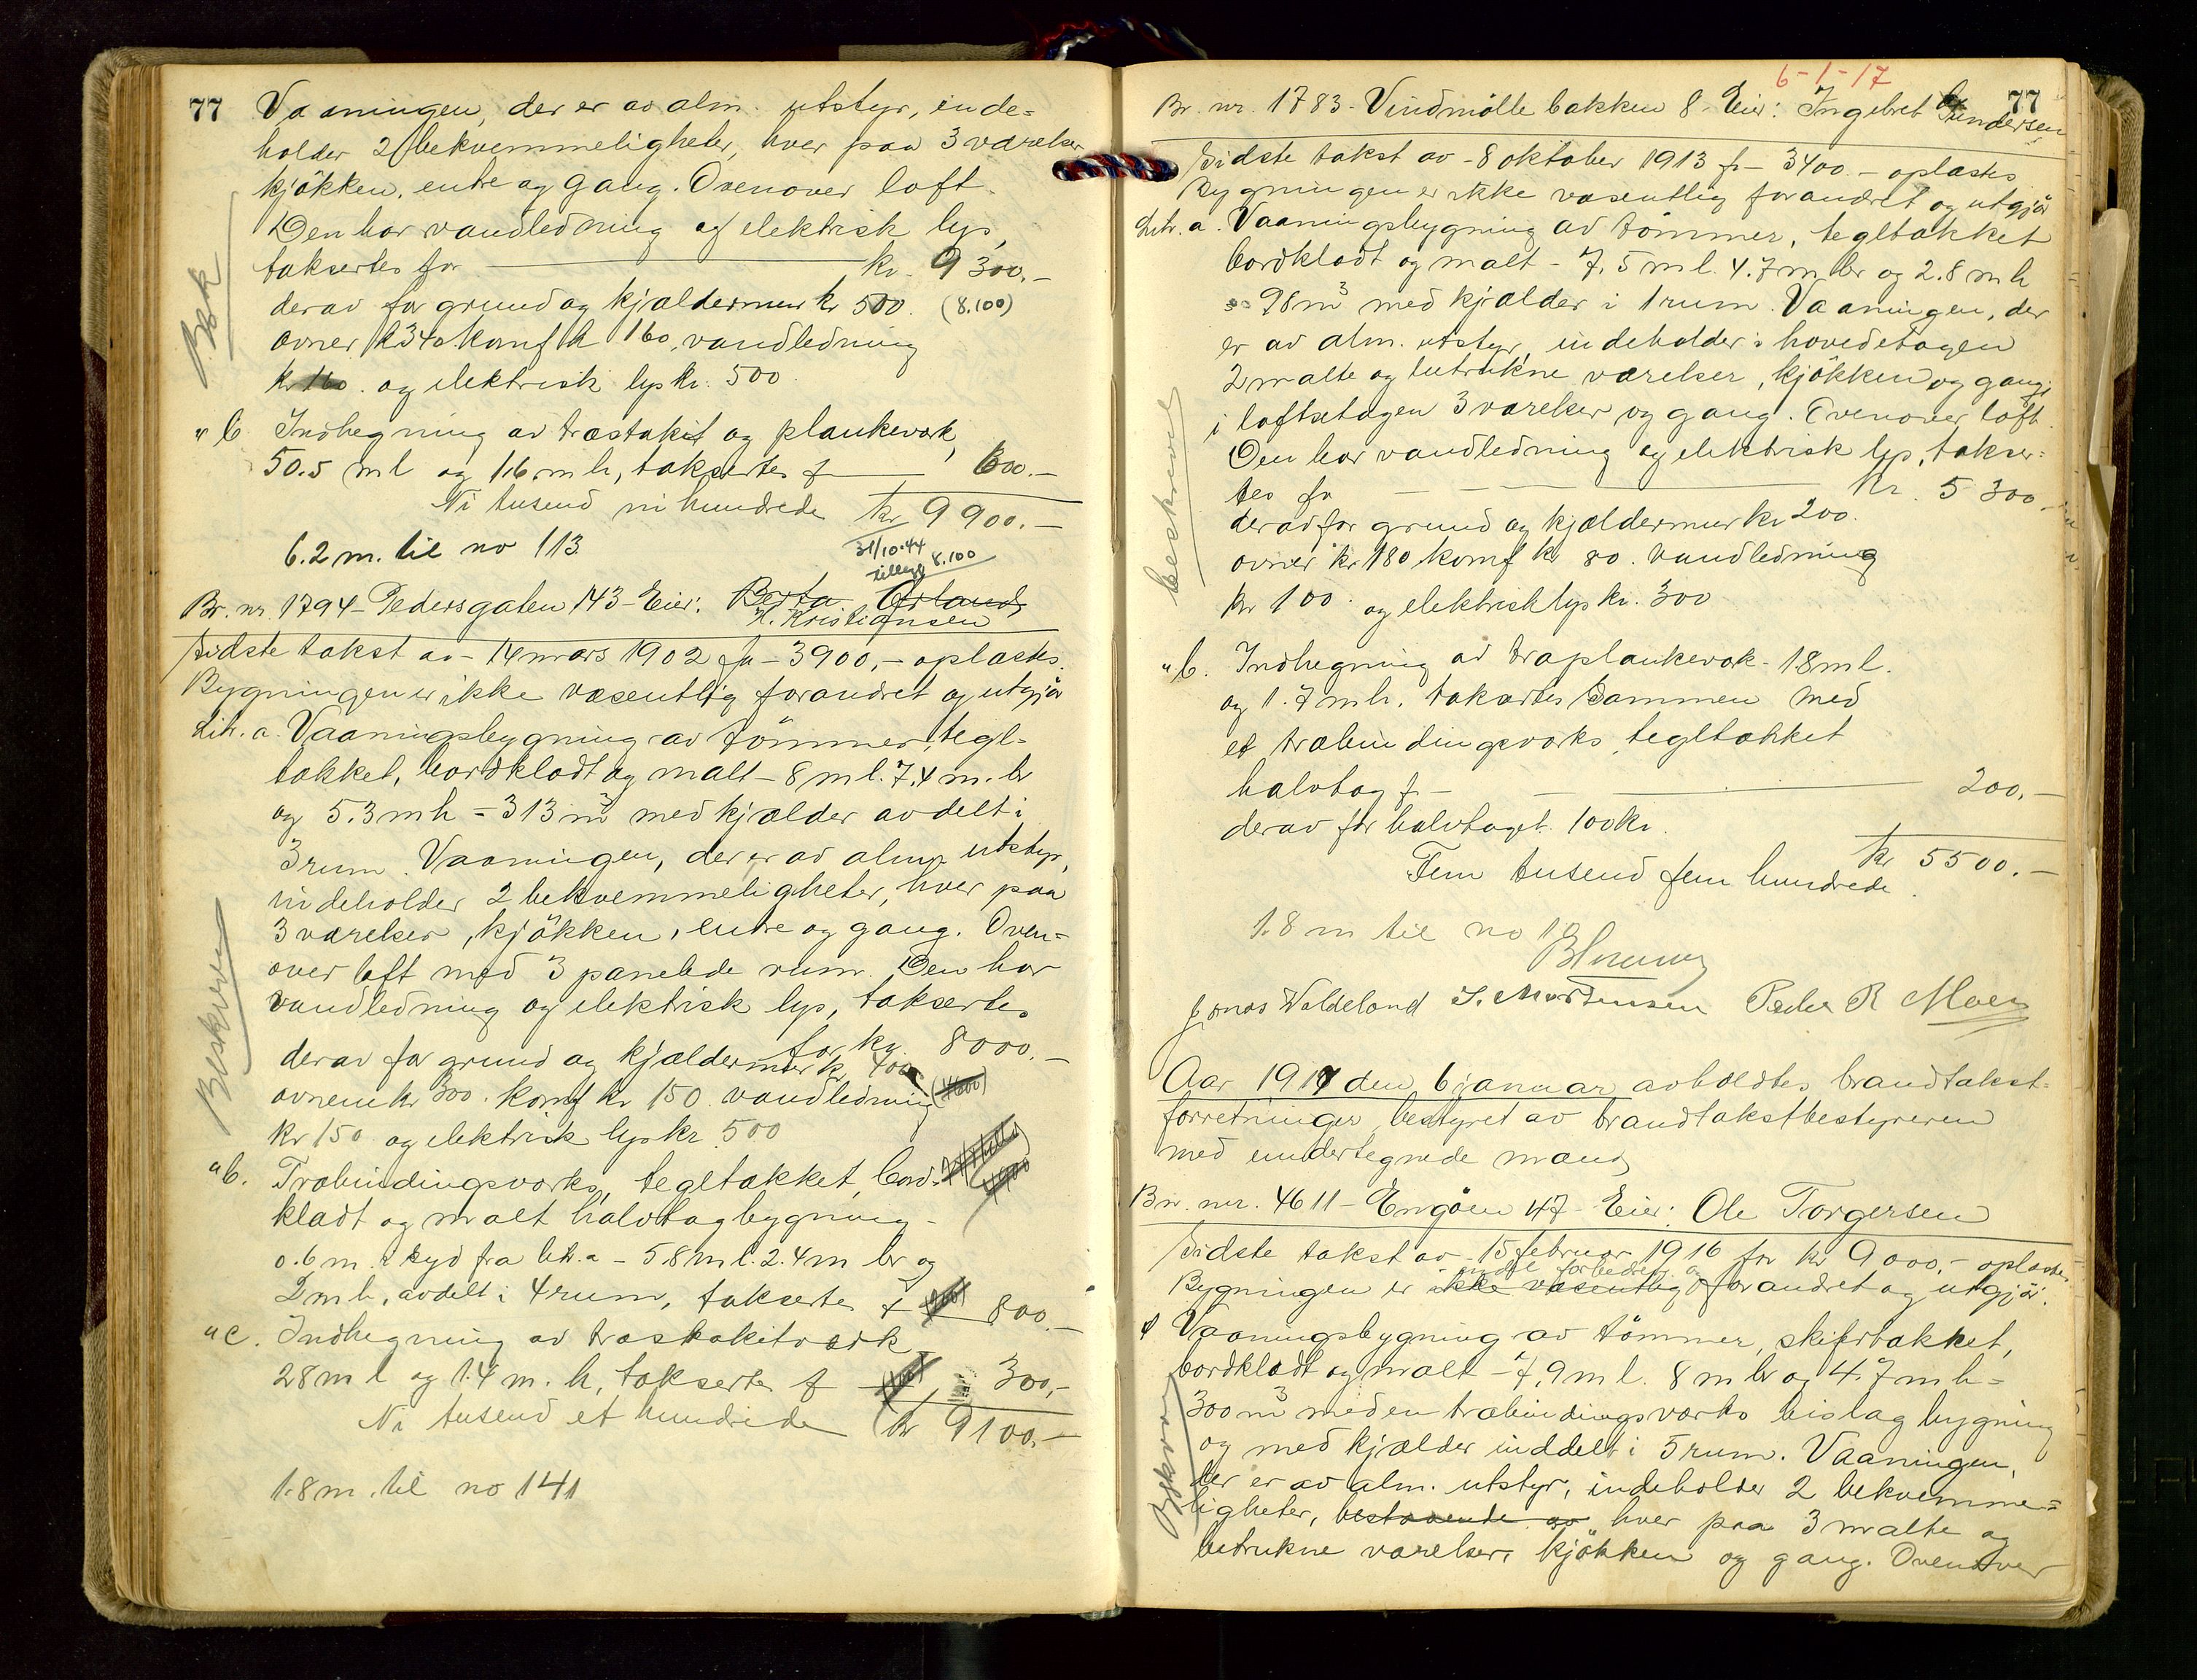 77
Vaaningen, der er av alm. utstyr, inde=
holder 2 bekvemmeligheter, hver paa 3 værelser
kjökken, entre og gang. Ovenover loft.
Den har vandledning og elektrisk lys,
taksertes for kr. 9300,-
derav for grund og kjældermur kr 500. (8.100)
ovner kr 340 komf kr 160, vandledning
kr 160. og elektrisk lys kr. 500
Besk
" b. Indhegning av træstakit og plankeværk,
50.5 m l og 1.6 m h, taksertes f 600.-
Ni tusend ni hundrede kr 9900.-
6.2 m. til no 113
31/10-44
tillegg 8.100
Br. nr. 1794 - Pedersgaten 143 - Eier: Berta Örland
K. Kristiansen
Sidste takst av - 14 mars 1902 fr - 3900,- oplæstes.
Bygningen er ikke væsentlig forandret og utgjör
Litr. a. Vaaningsbygning av tömmer, tegl-
tækket, bordklædt og malt - 8 m l. 7.4 m. br
og 5.3 m h = 313 m³ med kjælder avdelt i
3 rum. Vaaningen, der er av alm. utstyr,
indeholder 2 bekvemmeligheter, hver paa
3 værelser, kjökken, entre og gang. Oven=
over loft med 3 panelede rum. Den har
vandledning og elektrisk lys, taksertes
for kr. 8000.-
derav for grund og kjældermur kr 400
ovner kr 300. komf kr 150. vandledning (4600)
kr 150 og elektrisk lys kr 500
Beskreven
" b. Træbindingsværks, tegltækket, bord-
klædt og malt halvtagbygning -
0.6 m. i syd fra litr. a - 5.8 m l. 2.4 m br og
2 m h, avdelt i 4 rum, taksertes f 800.-
" c. Indhegning av træstakitværk
28 m l og 1.4 m. h, taksertes f 300,-
Ni tusend et hundrede kr 9100.-
1.8 m. til no 141
6-1-17
77
Br. nr. 1783 - Vindmölle bakken 8 - Eier: Ingebret Gundersen
Sidste takst av - 8 oktober 1913 fr - 3400.- oplæstes
Bygningen er ikke væsentlig forandret og utgjör
Litr. a. Vaaningsbygning av tömmer, tegltækket
bordklædt og malt - 7.5 m l. 4.7 m br og 2.8 m h
= 98 m³ med kjælder i 1 rum. Vaaningen, der
er av alm. utstyr, indeholder i hovedetagen
2 malte og betrukne værelser, kjökken og gang;
i loftsetagen 3 værelser og gang. Ovenover loft.
Den har vandledning og elektrisk lys, takser=
tes for Kr. 5300
derav for grund og kjældermur kr 200.
ovner kr 180 komf kr 80. vandledning
kr 100. og elektrisk lys kr. 300
beskrevet
" b. Indhegning av træplankeværk - 18 m l.
og 1.7 m h. taksertes sammen med
et træbindingsværks, tegltækket
halvtag f - 200.-
derav for halvtaget 100 kr.
kr 5500.-
Fem tusend fem hundrede.
1.8 m til no 10
Jonas Waldeland S. Mortensen Peder R Moen
Aar 1917 den 6 januar avholdtes brandtakst-
forretninger, bestyret av brandtakstbestyreren
med undertegnede mænd
Br. nr. 4611 - Engöen 47 - Eier: Ole Torgersen
Sidste takst av - 15 februar 1916 for kr 9000,- oplæstes.
endel forbedret og
Bygningen er ikke væsentlig forandret og utgjör.
Vaaningsbygning av tömmer, skifertækket,
bordklædt og malt - 7.9 m l. 8 m br og 4.7 m h =
300 m³ med en træbindingsværks bislag bygning
og med kjælder inddelt i 5 rum. Vaaningen,
der er av alm. utstyr, indeholder 2 bekvemme=
ligheter, bestaaende av hver paa 3 malte og
betrukne værelser, kjökken og gang. Ovenover
Beskreven